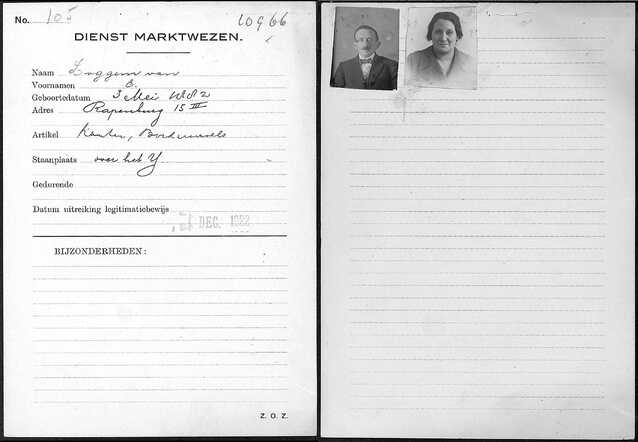 No. 105
10966
DIENST MARKTWEZEN.
Naam Zoggem van
Voornamen E.
Geboortedatum 3 Mei 1882
Adres Rapenburg 15 III
Artikel Kanten,
Staanplaats over het Y
Gedurende
Datum uitreiking legitimatiebewijs
DEC. 1922
BIJZONDERHEDEN:
Z. O. Z.